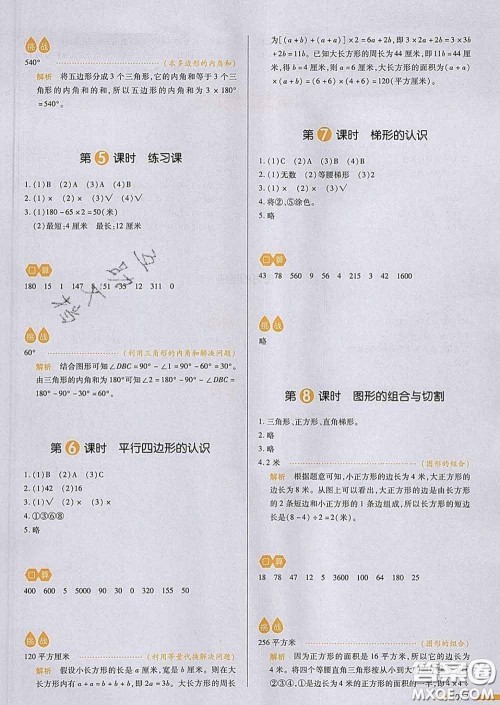 挑战
540° (求多边形的内角和)
解析 将五边形分成 3 个三角形,它的内角和等于 3 个三
角形的内角和的和,所以五边形的内角和为 3 × 180°
= 540°。
第5课时 练习课
1. (1)B (2)A (3)A (4)B
2. (1)× (2)× (3)√ (4)√
3. (1)180 - 65 × 2 = 50(米)
(2)最短:4 厘米 最长:12 厘米
口算
180 15 1 147 51 35 12 311 0
挑战
60° (利用三角形的内角和解决问题)
解析 结合图形可知∠DBC = 90° - ∠1 = 90° - ∠2,
由三角形内角和为 180°可知∠2 = 180° - 90° - ∠DBC
= 60°。
第6课时 平行四边形的认识
1. (1)B (2)C (3)B
2. (1)42 (2)16
3. (1)√ (2)× (3)×
4. ①③⑥⑧
5. 略
口算
400 600 5 5000 90 30 0 320 950
挑战
120 平方厘米 (利用等量代换解决问题)
解析 假设小长方形的长是 a 厘米,宽是 b 厘米,则在大
为[(a + b) + (a + a)] × 2 = 6a + 2b,即 3 × 2a + 2b =
3 × 3b + 2b = 11b。已知大长方形的周长为 44 厘米,即
11b = 44 厘米,由此可得 b = 4 厘米。把 b = 4 厘米代入
2a = 3b,可以得到 a = 6,大长方形的面积为(a + a)
× (a + b) = (6 + 6) × (6 + 4) = 120(平方厘米)。
第7课时 梯形的认识
1. (1)B (2)A (3)C
2. (1)无数 (2)等腰梯形
3. (1)× (2)√ (3)×
4. 将②、⑤涂色。
5. 略
口算
43 78 560 9 56 4 215 3 42 1600
挑战
略
第8课时 图形的组合与切割
1. 三角形、正方形、直角梯形。
2. 略
3. 略
4. 2 米 (图形的组合)
解析 根据题意可知,小正方形的边长为 4 米,大正方形
的边长为 8 米。从图上可以看出,大正方形的边长由长方形
的 2 条短边和小正方形的 1 条边组成,所以长方形的
短边长是(8 - 4) ÷ 2 = 2(米)。
口算
18 78 47 12 3 3600 64 180 25
挑战
256 平方米 (图形的组合)
解析 因为正方形的面积为 16 平方米,所以正方形边长为
4 米。将四个等腰直角三角形按从大
②③④,①的直角边长是
答案圈
MXQE.COM